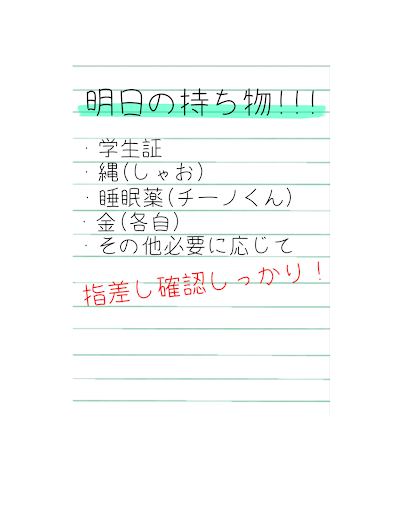 明日の持ち物!!!
・学生証
・縄(しゃお)
・睡眠薬(チーノくん)
・金(各自)
・その他必要に応じて
指差し確認しっかり!